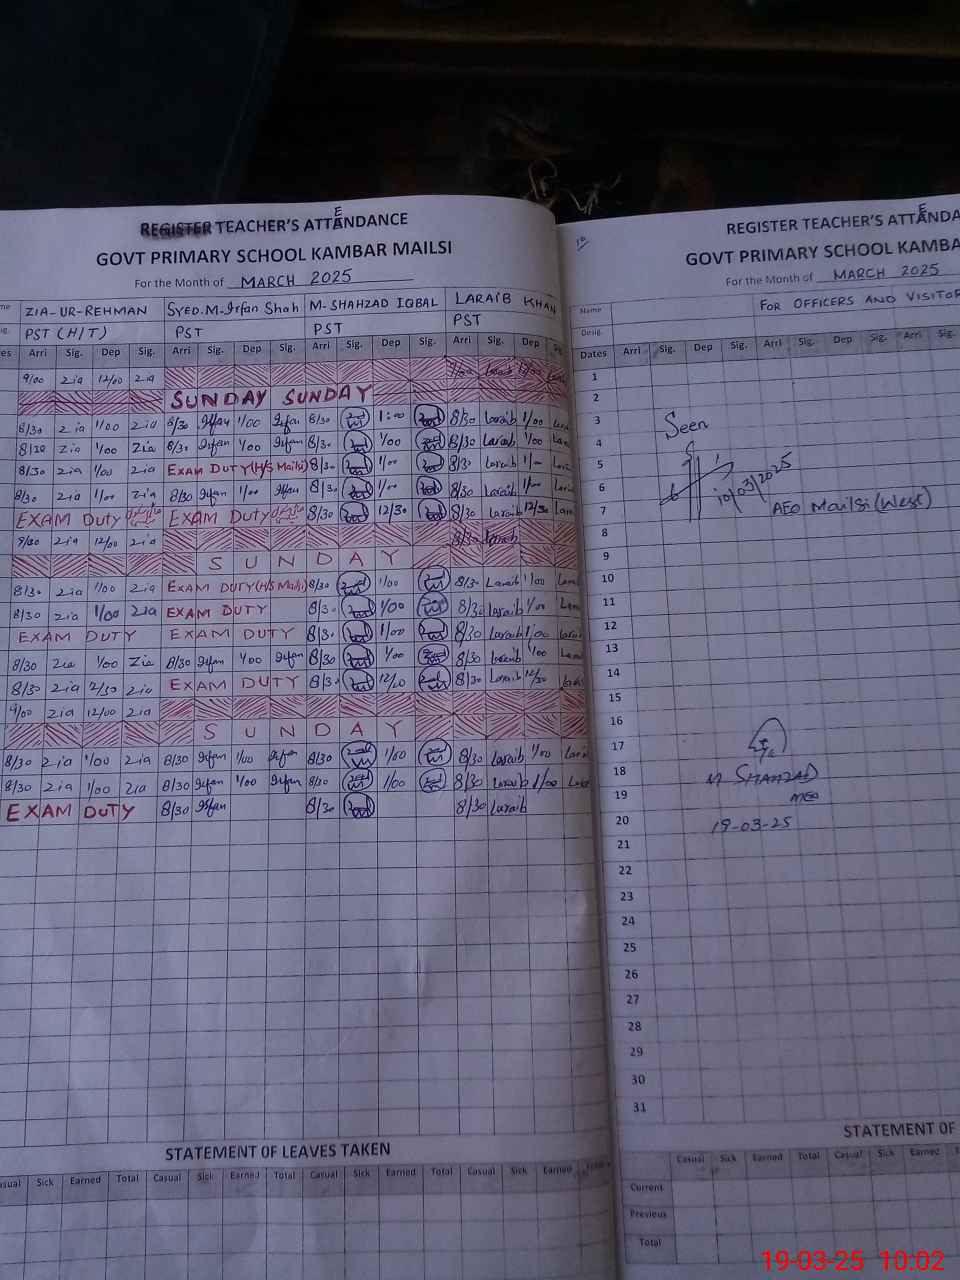 REGISTER TEACHER'S ATTENDANCE
GOVT PRIMARY SCHOOL KAMBAR MAILSI
For the Month of MARCH 2025
me ZIA-UR-REHMAN Syed.M.Irfan Shah M-SHAHZAD IQBAL LARAIB KHAN
ig. PST (H/T) PST PST PST
es Arri Sig. Dep Sig. Arri Sig. Dep Sig. Arri Sig. Dep Sig. Arri Sig. Dep
9/00 zia 12/00 zia
SUNDAY SUNDAY
8/30 zia 1/00 zia 8/30 Irfan 1/00 Irfan 8/30 1:00 8/30 Laraib 1/00
8/20 zia 1/00 zia 8/30 Irfan 1/00 Irfan 8/30 1/00 8/30 Laraib 1/00
8/30 zia 1/00 zia EXAM DUTY (H/S Mailsi) 8/30 1/00 8/30 Laraib
8/30 zia 1/00 zia 8/30 Irfan 1/00 Irfan 8/30 1/00 8/30 Laraib 1/00
EXAM Duty EXAM Duty 8/30 12/30 8/30 Laraib 12/30
9/00 zia 12/00 zia
SUNDAY
8/30 zia 1/00 zia EXAM DUTY (H/S Mailsi) 8/30 1/00 8/30 Laraib 1/00
8/30 zia 1/00 zia EXAM DUTY 8/30 1/00 8/30 Laraib 1/00
EXAM DUTY EXAM DUTY 8/30 1/00 8/30 Laraib 1/00
8/30 zia 1/00 zia 8/30 Irfan 1/00 Irfan 8/30 1/00 8/30 Laraib 1/00
8/30 zia 12/30 zia EXAM DUTY 8/30 8/30 Laraib 12/30
9/00 zia 12/00 zia
SUNDAY
8/30 zia 1/00 zia 8/30 Irfan 1/00 Irfan 8/30 1/00 8/30 Laraib 1/00
8/30 zia 1/00 zia 8/30 Irfan 1/00 Irfan 8/30 1/00 8/30 Laraib 1/00
EXAM DUTY 8/30 Irfan 8/30 8/30 Laraib
STATEMENT OF LEAVES TAKEN
asual Sick Earned Total Casual Sick Earned Total Casual Sick Earned Total Casual Sick Earned Total
REGISTER TEACHER'S ATTENDA
GOVT PRIMARY SCHOOL KAMBA
For the Month of MARCH 2025
Name FOR OFFICERS AND VISITOR
Desig.
Dates Arri Sig. Dep Sig. Arri Sig. Dep Sig. Arri Sig.
1
2
3
Seen
4
5
6
10/03/2025
7
AEO Mailsi (West)
8
9
10
11
12
13
14
15
16
17
18
M SHAHZAD
19
MEO
20
19-03-25
21
22
23
24
25
26
27
28
29
30
31
STATEMENT OF
Casual Sick Earned Total Casual Sick Earned
Current
Previous
Total
19-03-25 10:02